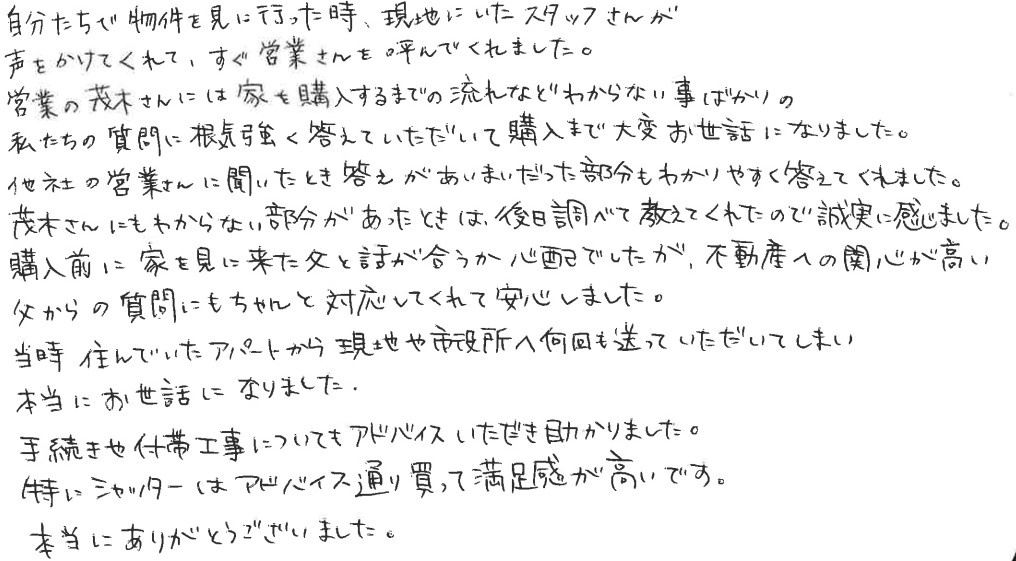 自分たちで物件を見に行った時、現地にいたスタッフさんが
声をかけてくれて、すぐ営業さんを呼んでくれました。
営業の茂木さんには家を購入するまでの流れなどわからない事ばかりの
私たちの質問に根気強く答えていただいて購入まで大変お世話になりました。
他社の営業さんに聞いたとき答えがあいまいだった部分もわかりやすく答えてくれました。
茂木さんにもわからない部分があったときは、後日調べて教えてくれたので誠実に感じました。
購入前に家を見に来た父と話が合うか心配でしたが、不動産への関心が高い
父からの質問にもちゃんと対応してくれて安心しました。
当時住んでいたアパートから現地や市役所へ何回も送っていただいてしまい
本当にお世話になりました.
手続きや付帯工事についてもアドバイスいただき助かりました。
特にシャッターはアドバイス通り買って満足感が高いです。
本当にありがとうございました。